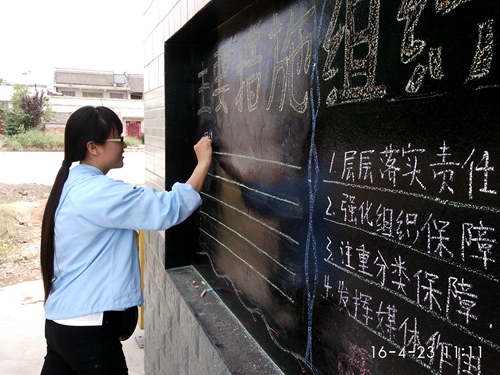 主要措施
组织
1.层层落实责任
2.强化组织保障
3.注重分类保障,
4.发挥媒体作用
16-4-23 11:11